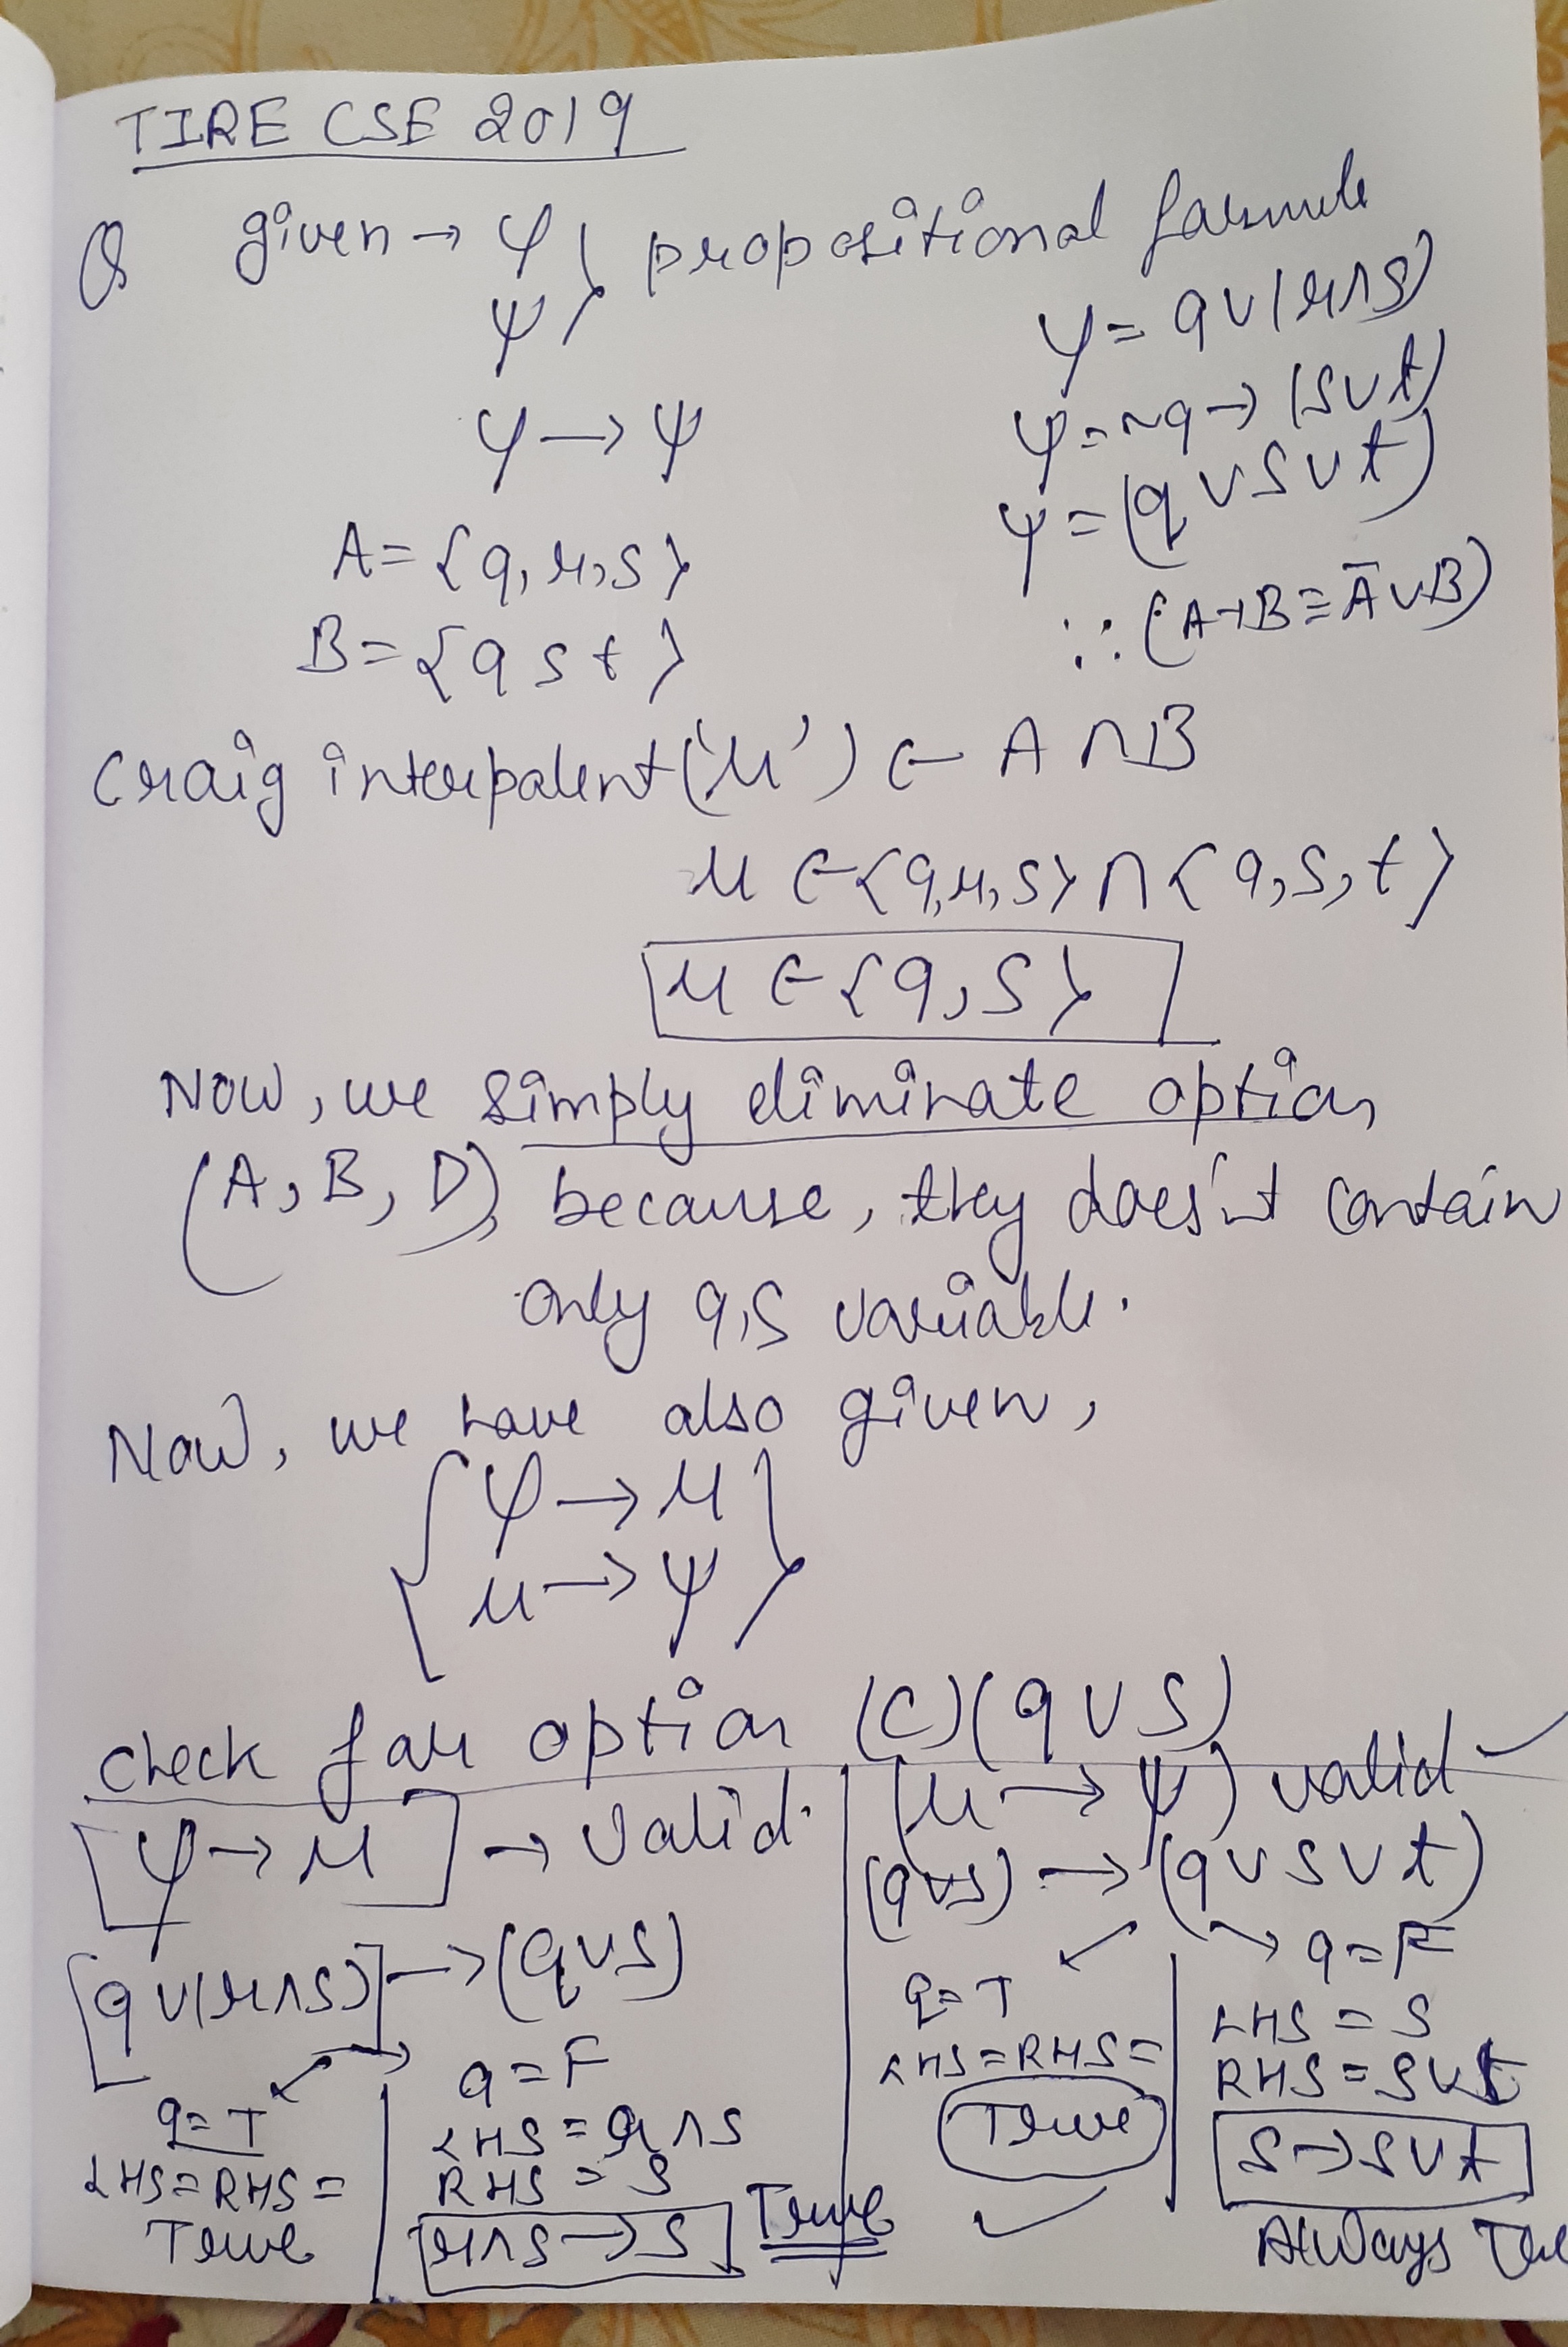 TIRE CSE 2019
Q given → φ } propositional formula
ψ
φ = q ∨ (r ∧ s)
φ → ψ
ψ = ~q → (s ∨ t)
ψ = (q ∨ s ∨ t)
A = {q, r, s}
∵ (A → B ≡ Ā ∨ B)
B = {q s t}
Craig interpolent ('μ') ∈ A ∩ B
μ ∈ {q, r, s} ∩ {q, s, t}
μ ∈ {q, s}
Now, we simply eliminate option
(A, B, D), because, they does'nt contain
only q, s variable.
Now, we have also given,
{ φ → μ }
μ → ψ
Check for option (C) (q ∨ s)
[φ → μ] → valid.
[q ∨ (r ∧ s)] → (q ∨ s)
q = T
LHS = RHS =
True
q = F
LHS = r ∧ s
RHS = s
r ∧ s → s True
(μ → ψ) valid ✓
(q ∨ s) → (q ∨ s ∨ t)
q = T
LHS = RHS =
True
✓
q = F
LHS = s
RHS = s ∨ t
s → s ∨ t
Always